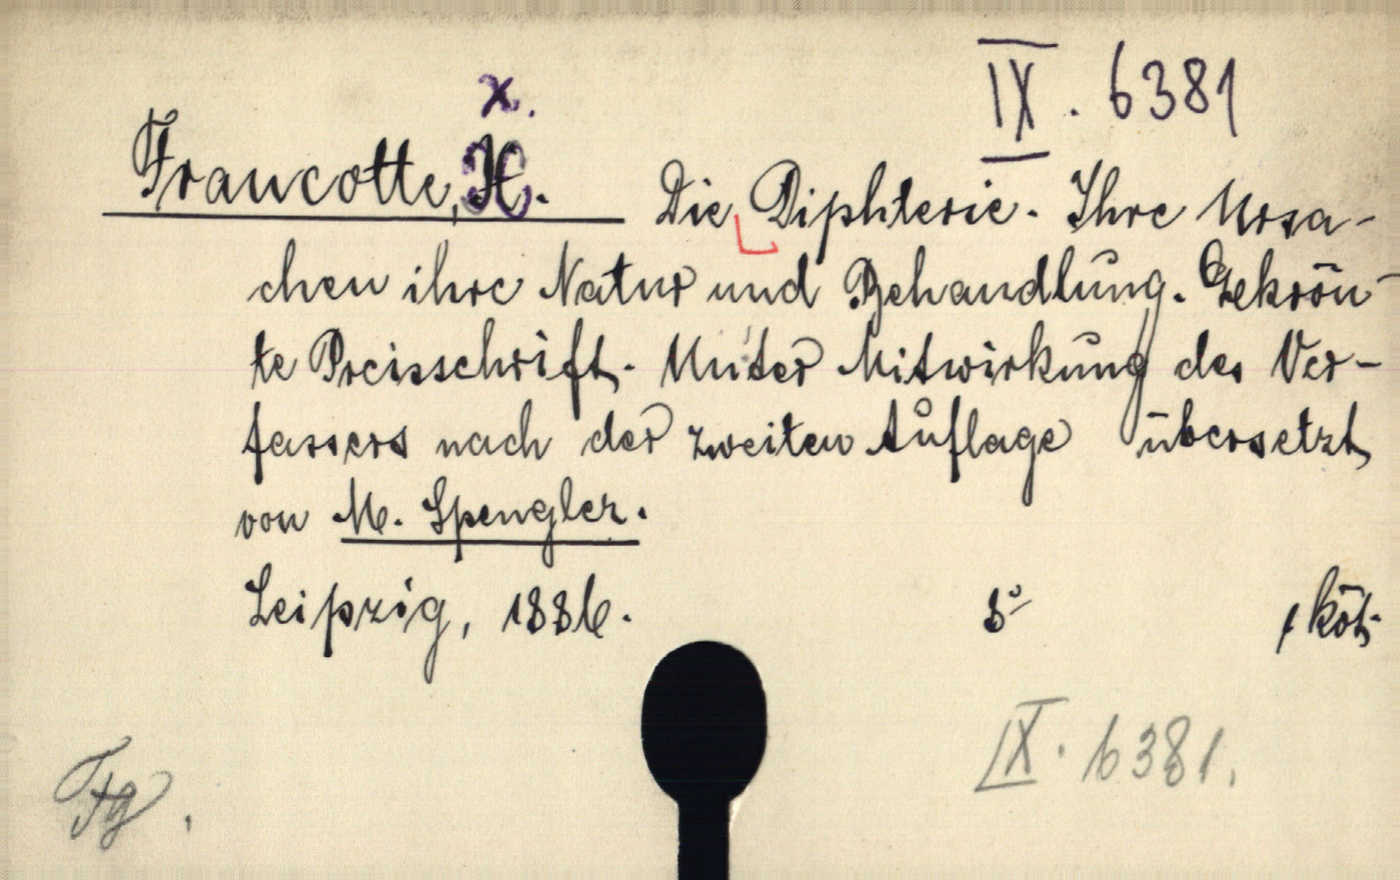 IX. 6381
x.
Francotte, X. Die Diphterie. Ihre Ursa-
chen ihre Natur und Behandlung. Gekrön-
te Preisschrift. Unter Mitwirkung des Ver-
fassers nach der zweiten Auflage übersetzt
von M. Spengler.
Leipzig, 1886. 8° 1 köt.
IX. 6381.
Fg.